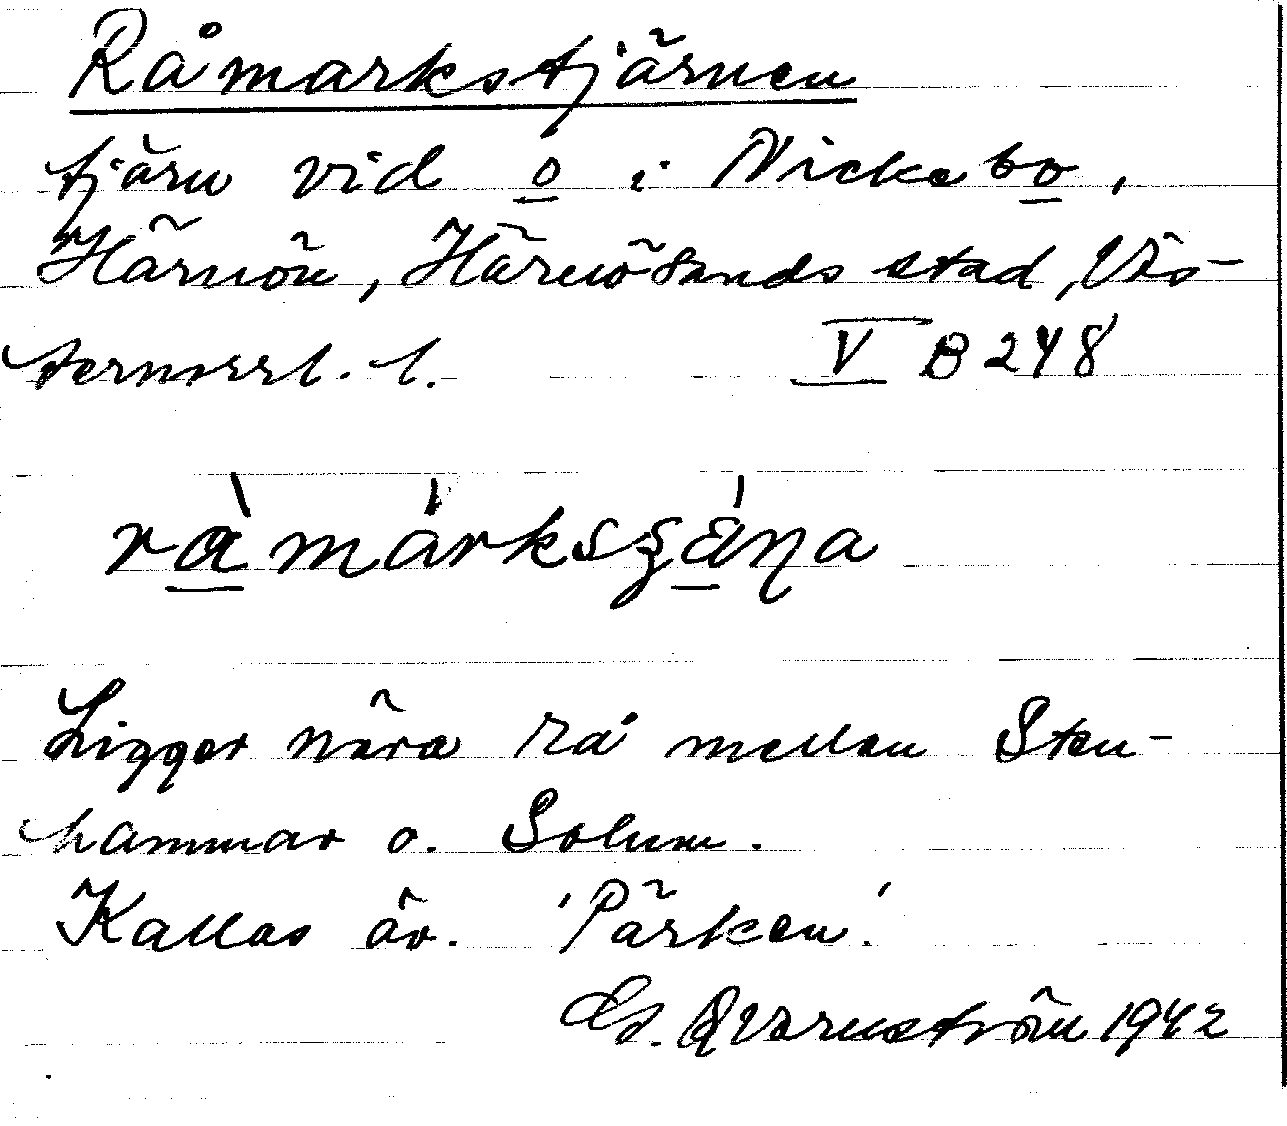 Råmarkstjärnen
tjärn vid o i Nickebo,
Härnön, Härnösands stad, Väs-
ternorrl. l. V B 248
Ligger nära rå mellan Sten-
hammar o. Solum.
Kallas äv. 'Pärken'.
Qvarnström 1942